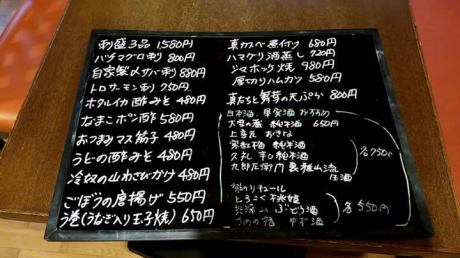 刺盛3品 1,580円
バチマグロ刺 800円
自家製〆サバ刺 880円
トロサーモン刺 750円
ホタルイカ酢みそ 480円
なまこポン酢 580円
おつまみマス筋子 480円
うどの酢みそ 480円
冷奴の山わさびかけ 480円
ごぼうの唐揚げ 550円
う巻(うなぎ入り玉子焼) 650円
真カスベ煮付け 680円
ハマグリ酒蒸し 720円
シマホッケ焼 980円
厚切りハムカツ 580円
真たちと舞茸の天ぷら 800円
日本酒 果実酒 おすすめ
大雪の蔵 純米酒 650円
上喜元
純米酒
久礼 辛口純米酒
九郎左衛門 裏雅山流
各750円
リキュール
とろこく桃姫
ぶどう酒
ゆず酒
各550円